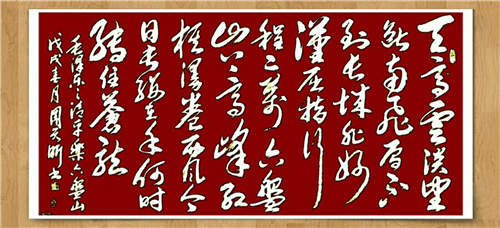 天高雲淡望
断南飛雁不
到长城非好
漢屈指行
程二萬六盤
山上高峰红
旗漫卷西风今
日长缨在手何时
缚住蒼龙
毛泽东之清平樂六盤山
戊戌春月周书